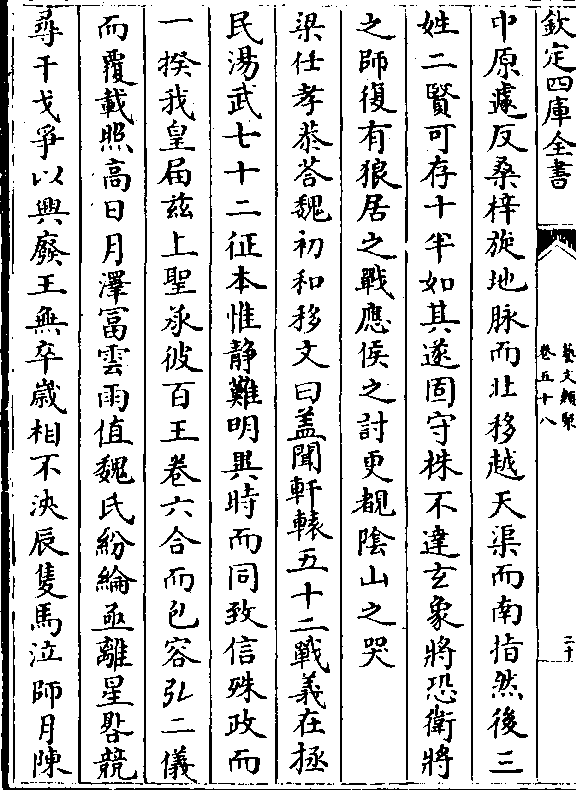 欽定四庫全書
藝文類聚
卷五十八
二十
中原遽反桑梓旋地脉而北移越天渠而南指然後三
姓二賢可存十半如其遂固守株不達玄象將恐衛將
之師復有狼居之戰應侯之討更覩陰山之哭
梁任孝恭荅魏初和移文曰盖聞軒轅五十二戰義在拯
民湯武七十二征本惟静難明異時而同致信殊政而
一揆我皇屆兹上聖承彼百王卷六合而包容弘二儀
而覆載照高日月澤冨雲雨值魏氏紛綸亟離星畧競
尋干戈爭以興廢王無卒歲相不浹辰隻馬泣師月陳